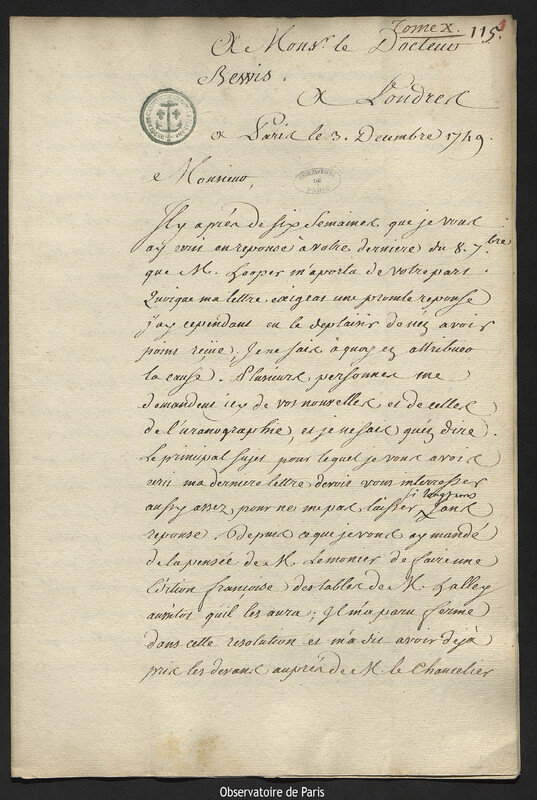 Tome X. 115.
A Monsr. le Docteur
Bewis.
A Londres
a Paris le 3. Decembre 1749.
OBSERVATOIRE DE PARIS
Monsieur,
Il y a près de six semaines que je vous
ay ecrit en reponse à votre derniere du 8. 7.bre
que M. Hooper m'aporta de votre part.
Quoique ma lettre exigeat une promte reponse
j'ay cependant eu le deplaisir de n'en avoir
point reçue, Je ne sais à quoy en attribuer
la cause. Plusieurs personnes me
demandent icy de vos nouvelles et de celles
de l'uranographie, et je ne sais qu'en dire.
Le principal sujet pour lequel je vous avois
ecrit ma derniere lettre devoit vous interresser
aussy assez pour ne me pas laisser si longtems sans
reponse. Depuis ce que je vous ay mandé
de la pensée de M. Lemonier de faire une
Edition françoise des tables de M. Halley
aussitot quil les aura; Il m'a paru ferme
dans cette resolution et m'a dit avoir dejà
pris les devans auprès de M le Chancelier
Observatoire de Paris